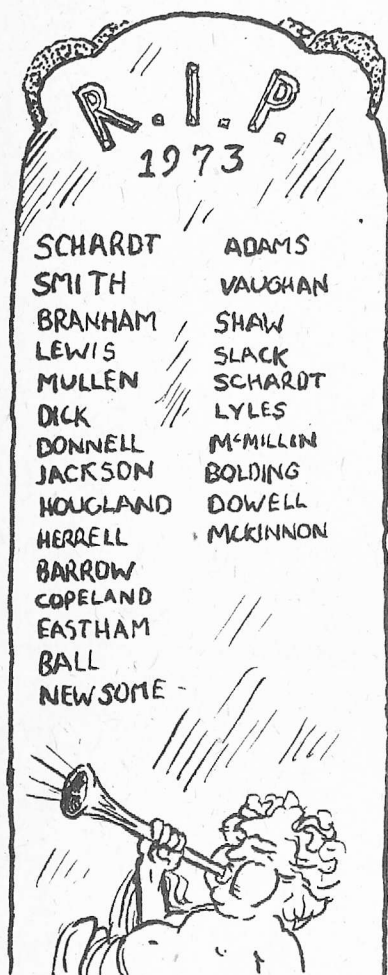 R.I.P.
1973
SCHARDT
SMITH
BRANHAM
LEWIS
MULLEN
DICK
DONNELL
JACKSON
HOUGLAND
HERRELL
BARROW
COPELAND
EASTHAM
BALL
NEWSOME
ADAMS
VAUGHAN
SHAW
SLACK
SCHARDT
LYLES
McMILLIN
BOLDING
DOWELL
MCKINNON